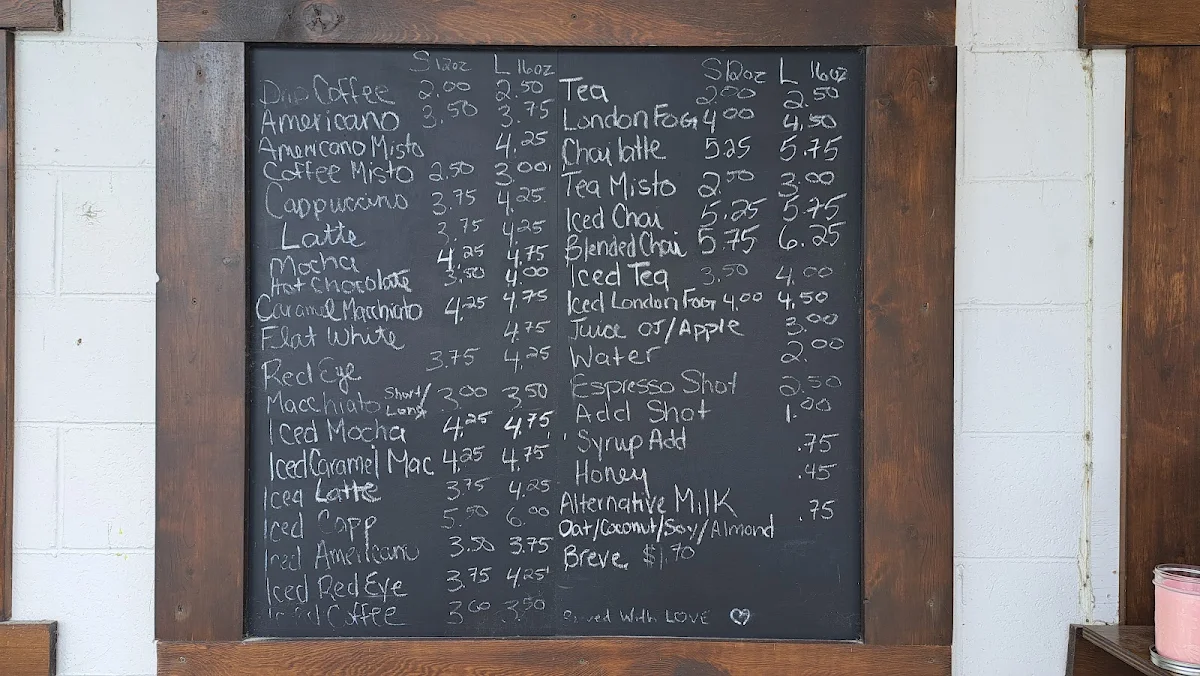 S 12oz L 16oz
Drip Coffee 2.00 2.50
Americano 3.50 3.75
Americano Misto 4.25
Coffee Misto 2.50 3.00
Cappuccino 3.75 4.25
Latte 3.75 4.25
Mocha 4.25 4.75
Hot Chocolate 3.50 4.00
Caramel Macchiato 4.25 4.75
Flat White 4.75
Red Eye 3.75 4.25
Macchiato Short/Long 3.00 3.50
Iced Mocha 4.25 4.75
Iced Caramel Mac 4.25 4.75
Iced Latte 3.75 4.25
Iced Capp 5.50 6.00
Iced Americano 3.50 3.75
Iced Red Eye 3.75 4.25
Iced Coffee 3.00 3.50
S 12oz L 16oz
Tea 2.00 2.50
London Fog 4.00 4.50
Chai latte 5.25 5.75
Tea Misto 2.50 3.00
Iced Chai 5.25 5.75
Blended Chai 5.75 6.25
Iced Tea 3.50 4.00
Iced London Fog 4.00 4.50
Juice OJ/Apple 3.00
Water 2.00
Espresso Shot 2.50
Add Shot 1.00
Syrup Add .75
Honey .45
Alternative Milk .75
Oat/Coconut/Soy/Almond
Breve $1.70
Served With LOVE ♡